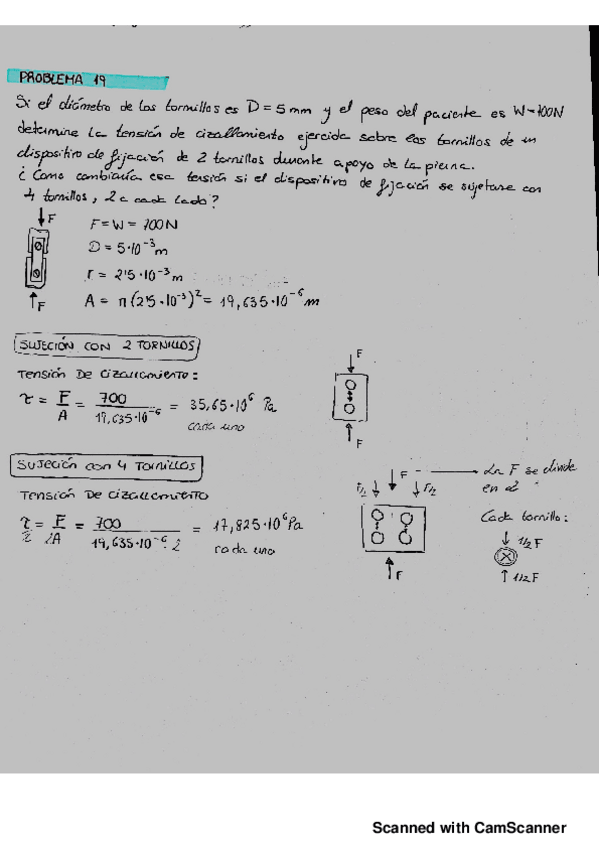 PROBLEMA 19
Si el diámetro de los tornillos es D = 5mm y el peso del paciente es W=700N
determine la tensión de cizallamiento ejercida sobre los tornillos de un
dispositivo de fijación de 2 tornillos durante apoyo de la pierna.
¿Como cambiaría esa tensión si el dispositivo de fijación se sujetase con
4 tornillos, 2 a cada lado?
F
F = W = 700N
D = 5·10⁻³m
r = 2'5·10⁻³m
F
A = π(2'5·10⁻³)² = 19,635·10⁻⁶ m
SUJECIÓN CON 2 TORNILLOS
F
Tensión De Cizallamiento:
τ = F/A = 700/19,635·10⁻⁶ = 35,65·10⁶ Pa
cada uno
F
SUJECIÓN CON 4 TORNILLOS
F
La F se divide
en 2
F/2
F/2
Tensión De Cizallamiento
Cada tornillo:
τ/2 = F/2A = 700/19,635·10⁻⁶·2 = 17,825·10⁶Pa
cada uno
1/2 F
F
1/2 F
Scanned with CamScanner